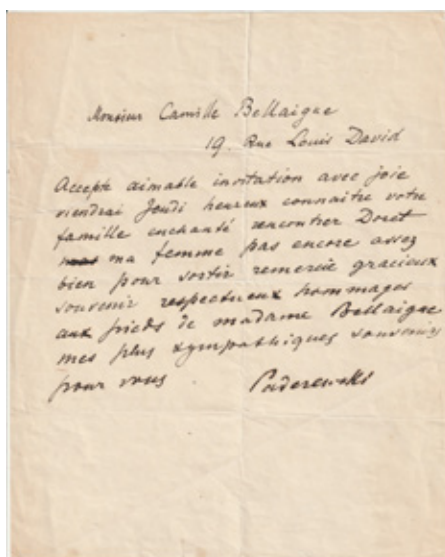 Monsieur Camille Bellaigue
19. Rue Louis David
Accepte aimable invitation avec joie
viendrai Jeudi heureux connaitre votre
famille enchanté rencontrer Doret
ma femme pas encore assez
bien pour sortir remercie gracieux
souvenir respectueux hommages
aux pieds de madame Bellaigue
mes plus sympathiques souvenirs
pour vous Paderewski